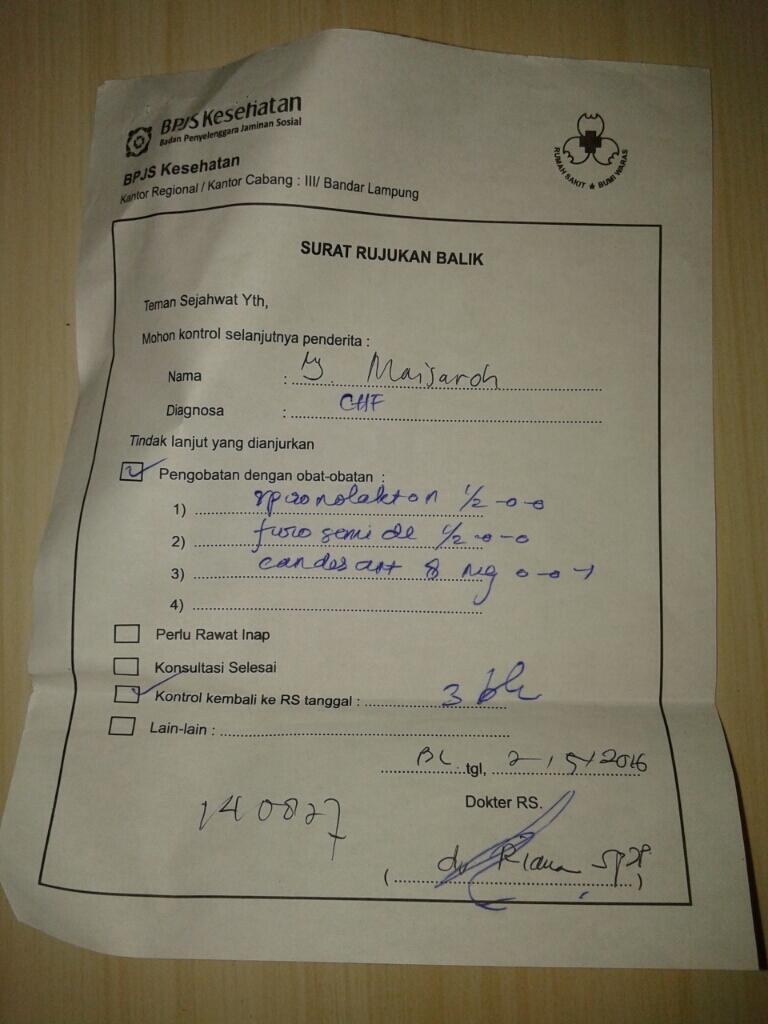 BPJS Kesehatan
Badan Penyelenggara Jaminan Sosial
RUMAH SAKIT ★ BUMI WARAS
BPJS Kesehatan
Kantor Regional / Kantor Cabang : III/ Bandar Lampung
SURAT RUJUKAN BALIK
Teman Sejahwat Yth,
Mohon kontrol selanjutnya penderita :
Nama : Ny. Maisaroh
Diagnosa : CHF
Tindak lanjut yang dianjurkan
Pengobatan dengan obat-obatan :
1) spironolakton 1/2 -o-o
2) furosemide 1/2 -o-o
3) candesart 8 mg o-o-1
4)
Perlu Rawat Inap
Konsultasi Selesai
Kontrol kembali ke RS tanggal : 3 bln
Lain-lain :
BL tgl, 2-/5/2016
Dokter RS.
140827
( dr Riana SpJP )